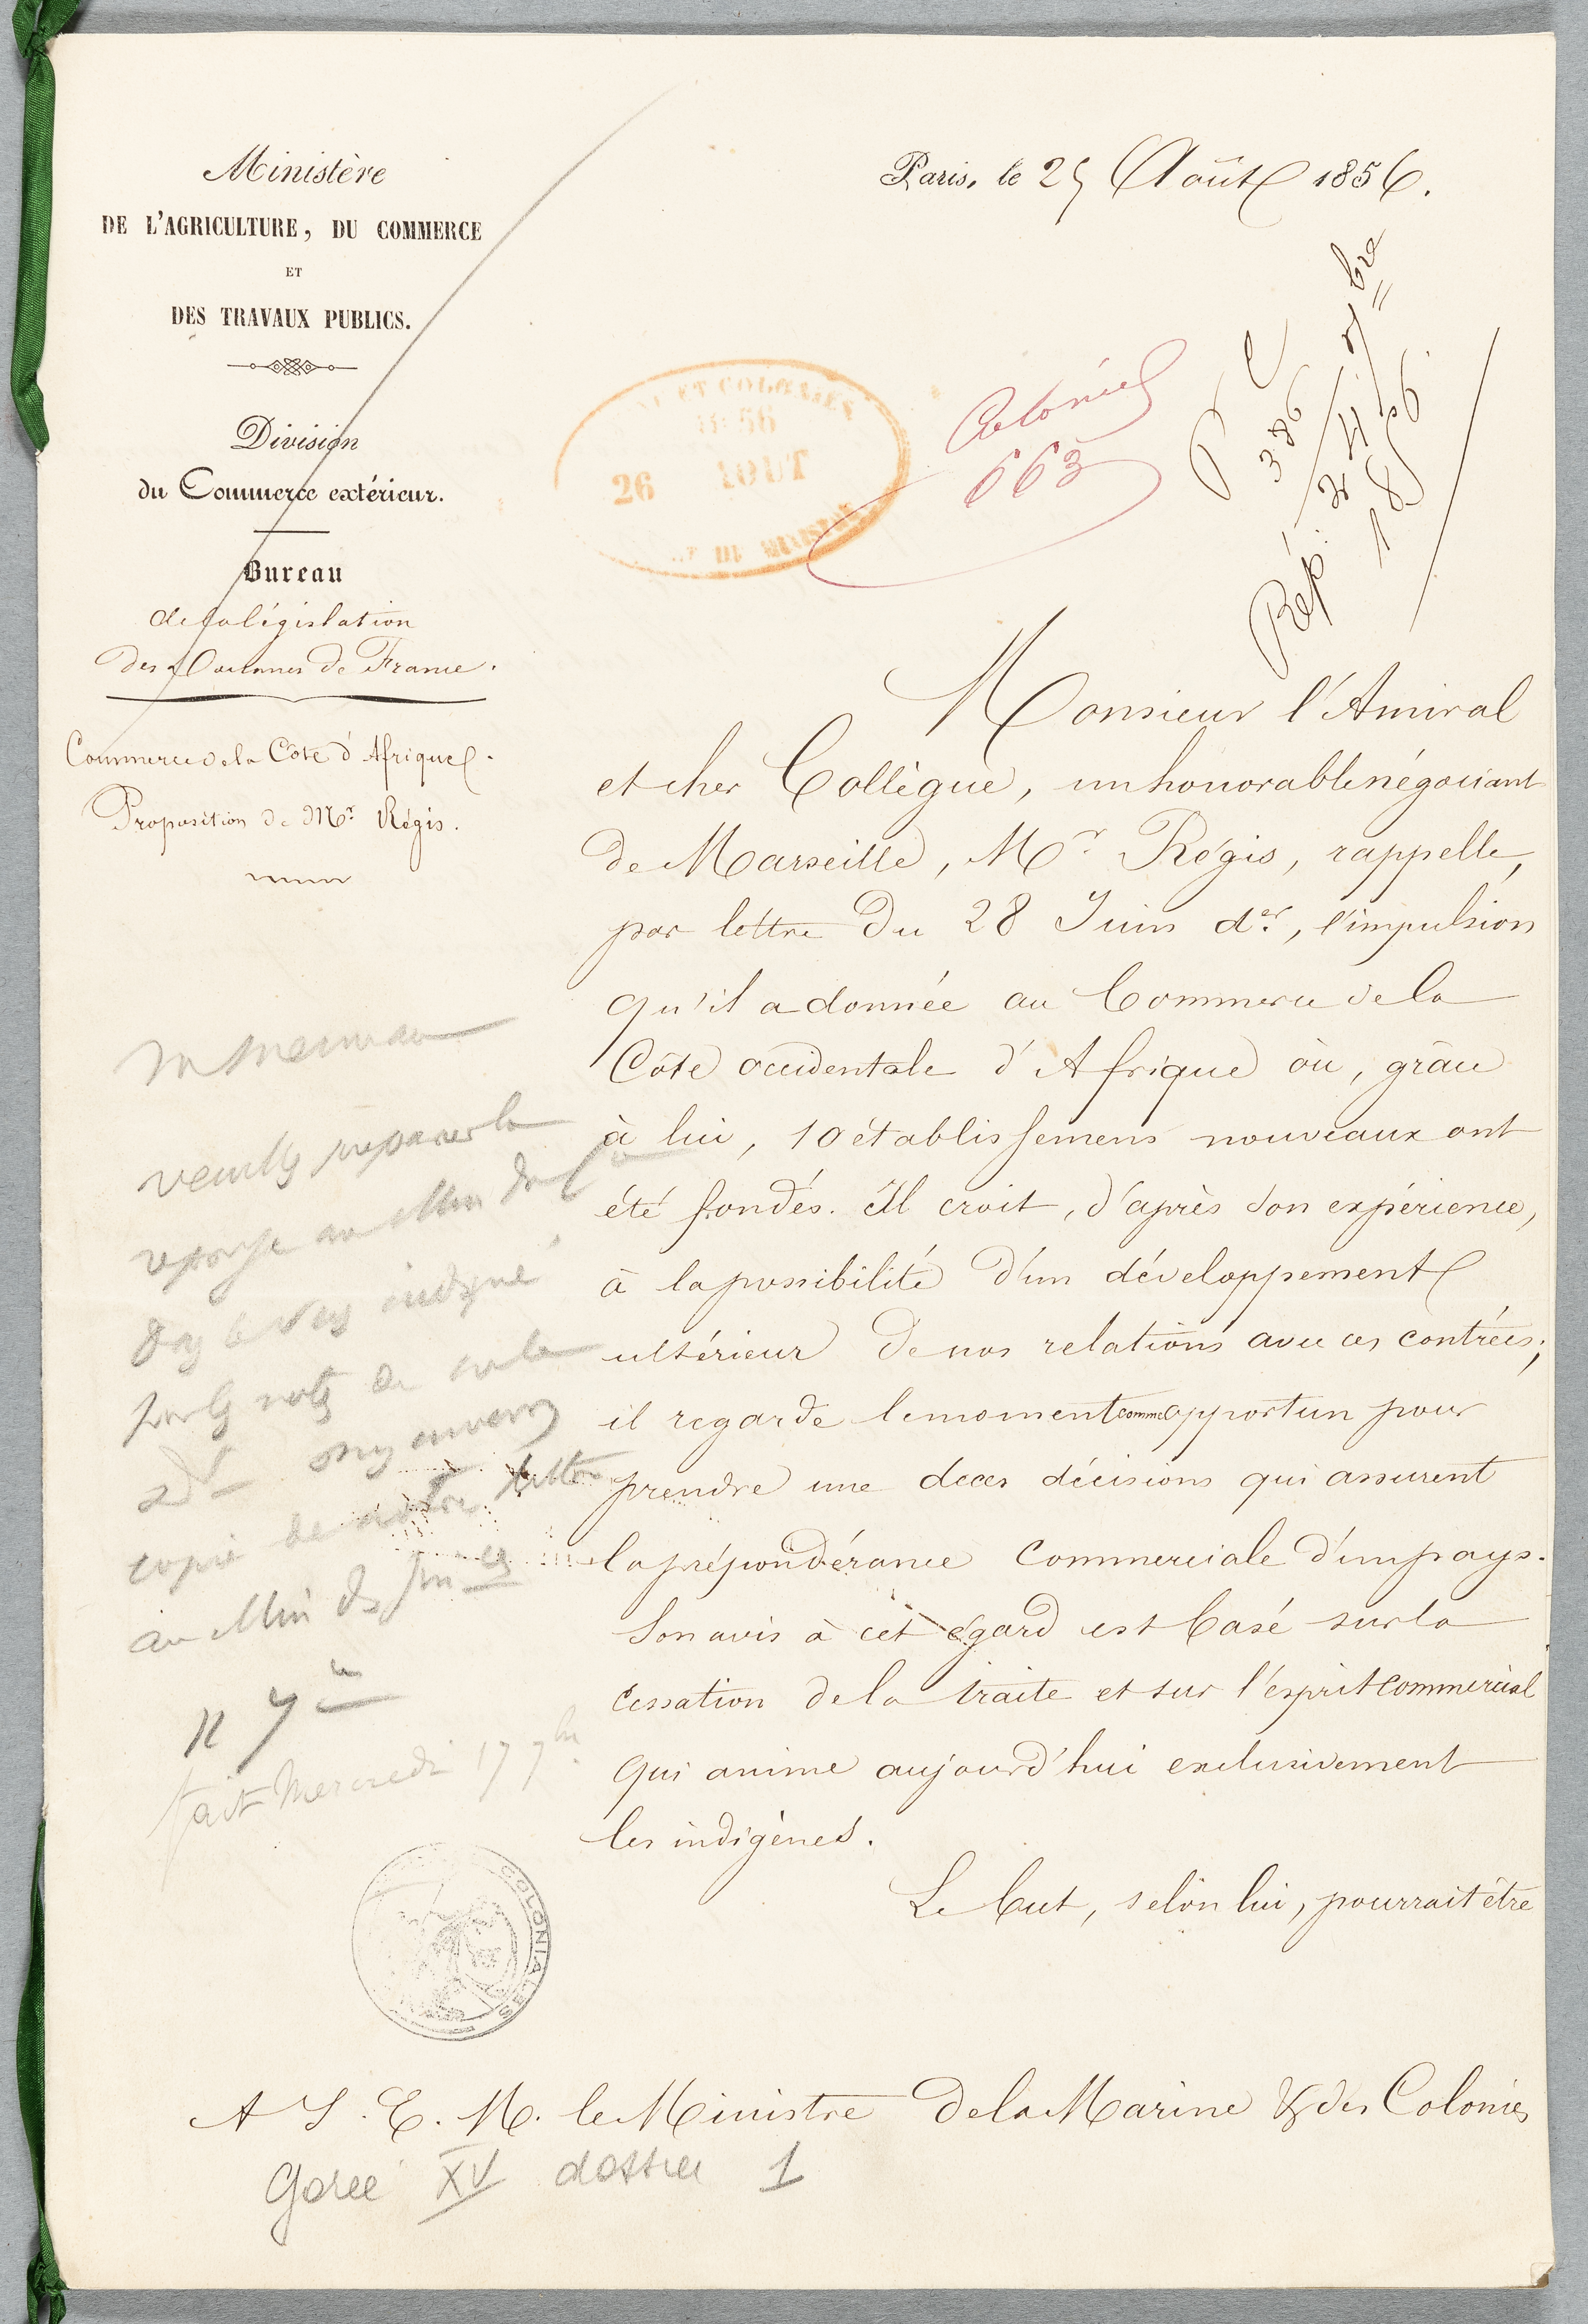 Ministère
DE L'AGRICULTURE, DU COMMERCE
ET
DES TRAVAUX PUBLICS.
Division
du Commerce extérieur.
Bureau
de la législation
des Douanes de France.
Commerce de la Côte d'Afrique.
Proposition de Mr. Régis.
Paris, le 25 Août 1856.
ET COLONIES
1856
26 AOUT
DU MINISTRE
Colonies
663
P C
386
Rép. 24 7bre
1856.
Monsieur l'Amiral
et cher Collègue, un honorable négociant
de Marseille, Mr Régis, rappelle,
par lettre du 28 Juin der, l'impulsion
qu'il a donnée au Commerce de la
Côte occidentale d'Afrique où, grâce
à lui, 10 établissemens nouveaux ont
été fondés. Il croit, d'après son expérience,
à la possibilité d'un développement
ultérieur de nos relations avec ces contrées;
il regarde le moment comme opportun pour
prendre une de ces décisions qui assurent
la prépondérance Commerciale d'un pays.
Son avis à cet égard est basé sur la
cessation de la traite et sur l'esprit Commercial
qui anime aujourd'hui exclusivement
les indigènes.
Le but, selon lui, pourrait être
veuillez préparer la
réponse au Min du
dans le sens indiqué
copie de notre lettre
au Min des
fait Mercredi 17 7bre
COLONIES
A S. E. M. le Ministre de la Marine & des Colonies
Gorée XV dossier 1